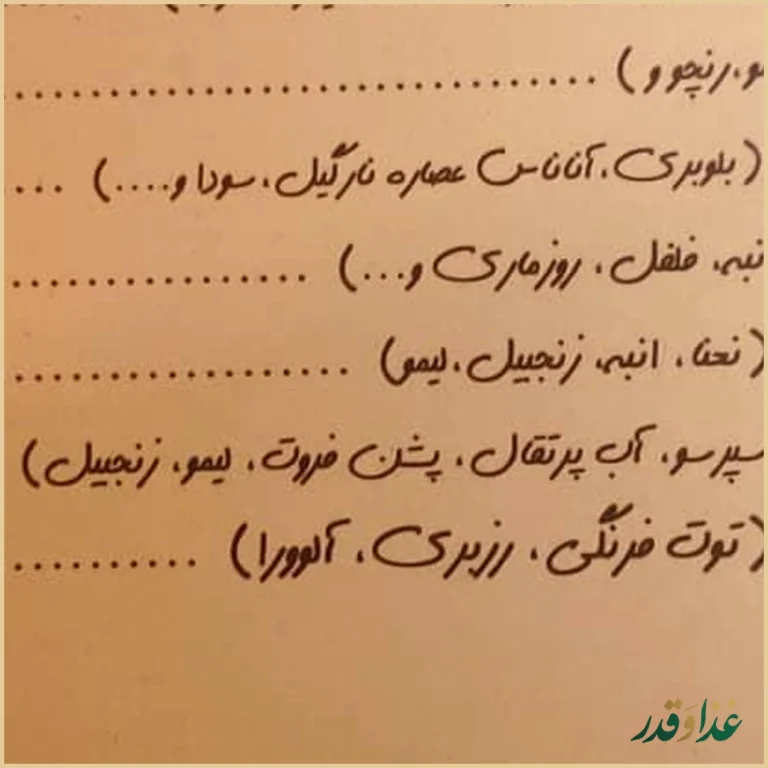 رنچو و) ................................
(بلوبری، آناناس عصاره نارگیل، سودا و....) ...
فلفل، روزماری و...) ................
(نعنا، انبه، زنجبیل، لیمو) ..................
سپرسو، آب پرتقال، پشن فروت، لیمو، زنجبیل)
(توت فرنگی، رزبری، آلوورا) ..........
غذا و قدر